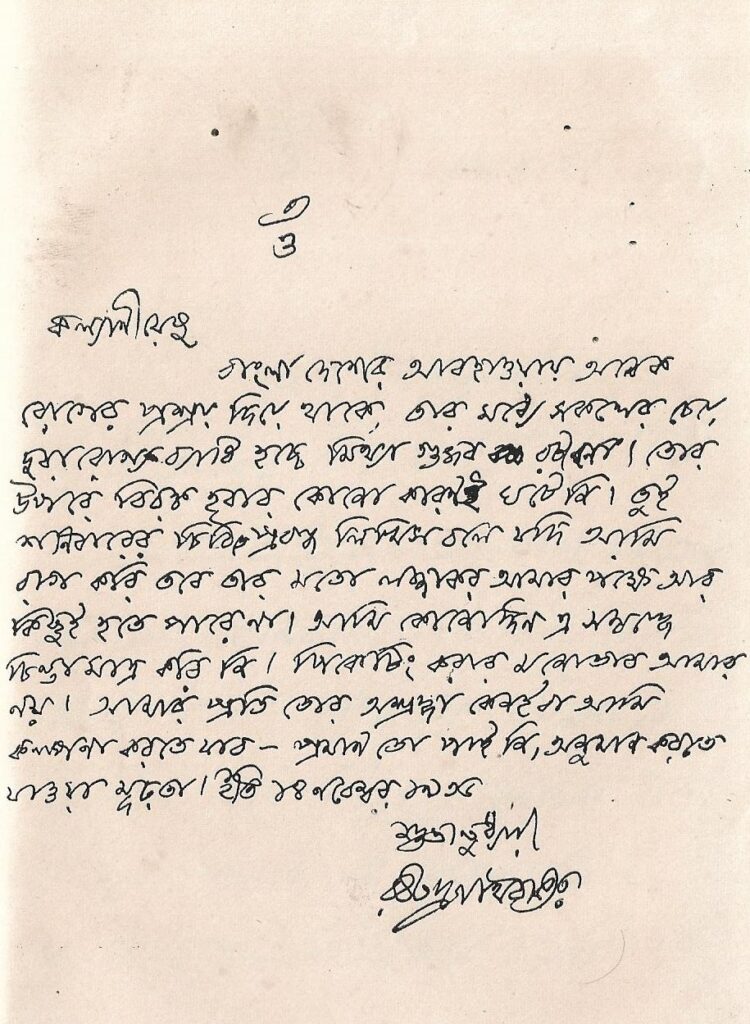 ওঁ
কল্যাণীয়েষু
বাংলা দেশের আবহাওয়ায় অনেক
রোগের প্রশ্রয় দিয়ে থাকে, তার মধ্যে সকলের চেয়ে
দুরারোগ্য ব্যাধি হচ্ছে মিথ্যা গুজব রটানো। তোর
উপরে বিরক্ত হবার কোনো কারণই ঘটেনি। তুই
শনিবারের চিঠিতে প্রবন্ধ লিখিস বলে যদি আমি
রাগ করি তবে তার মতো লজ্জাকর আমার পক্ষে আর
কিছুই হতে পারে না। আমি কোনোদিন এ সম্বন্ধে
চিন্তামাত্র করি নি। পিকেটিং করার মনোভাব আমার
নয়। আমার প্রতি তোর অশ্রদ্ধা কেনই বা আমি
কল্পনা করতে যাব – প্রমাণ তো পাই নি, অনুমান করতে
যাওয়া মূঢ়তা। ইতি ১৪ নবেম্বর ১৯৩৬
শুভানুধ্যায়ী
রবীন্দ্রনাথ ঠাকুর